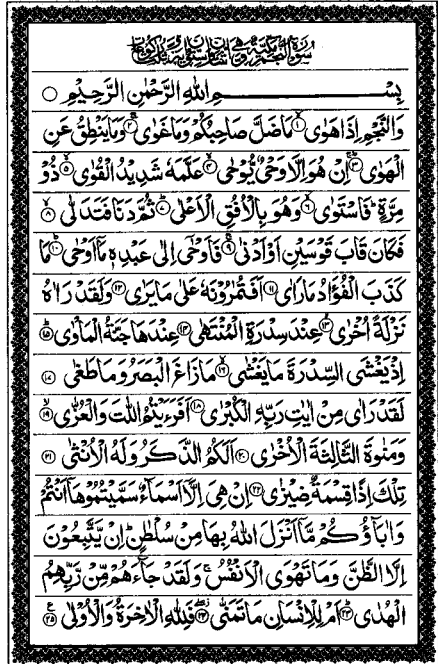 بِسْمِ اللهِ الرَّحْمٰنِ الرَّحِيْمِ ○
وَالنَّجْمِ اِذَا هَوٰى ۱ مَا ضَلَّ صَاحِبُكُمْ وَمَا غَوٰى ۲ وَمَا يَنْطِقُ عَنِ
الْهَوٰى ۳ اِنْ هُوَ اِلَّا وَحْيٌ يُّوْحٰى ۴ عَلَّمَهٗ شَدِيْدُ الْقُوٰى ۵ ذُوْ
مِرَّةٍ فَاسْتَوٰى ۶ وَهُوَ بِالْاُفُقِ الْاَعْلٰى ۷ ثُمَّ دَنَا فَتَدَلّٰى ۸
فَكَانَ قَابَ قَوْسَيْنِ اَوْ اَدْنٰى ۹ فَاَوْحٰى اِلٰى عَبْدِهٖ مَا اَوْحٰى ۱۰ مَا
كَذَبَ الْفُؤَادُ مَا رَاٰى ۱۱ اَفَتُمٰرُوْنَهٗ عَلٰى مَا يَرٰى ۱۲ وَلَقَدْ رَاٰهُ
نَزْلَةً اُخْرٰى ۱۳ عِنْدَ سِدْرَةِ الْمُنْتَهٰى ۱۴ عِنْدَهَا جَنَّةُ الْمَاْوٰى ۱۵
اِذْ يَغْشَى السِّدْرَةَ مَا يَغْشٰى ۱۶ مَا زَاغَ الْبَصَرُ وَمَا طَغٰى ۱۷
لَقَدْ رَاٰى مِنْ اٰيٰتِ رَبِّهِ الْكُبْرٰى ۱۸ اَفَرَءَيْتُمُ اللّٰتَ وَالْعُزّٰى ۱۹
وَمَنٰوةَ الثَّالِثَةَ الْاُخْرٰى ۲۰ اَلَكُمُ الذَّكَرُ وَلَهُ الْاُنْثٰى ۲۱
تِلْكَ اِذًا قِسْمَةٌ ضِيْزٰى ۲۲ اِنْ هِيَ اِلَّا اَسْمَاءٌ سَمَّيْتُمُوْهَا اَنْتُمْ
وَاٰبَاؤُكُمْ مَّا اَنْزَلَ اللهُ بِهَا مِنْ سُلْطٰنٍ اِنْ يَّتَّبِعُوْنَ
اِلَّا الظَّنَّ وَمَا تَهْوَى الْاَنْفُسُ وَلَقَدْ جَاءَهُمْ مِّنْ رَّبِّهِمُ
الْهُدٰى ۲۳ اَمْ لِلْاِنْسَانِ مَا تَمَنّٰى ۲۴ فَلِلّٰهِ الْاٰخِرَةُ وَالْاُوْلٰى ۲۵